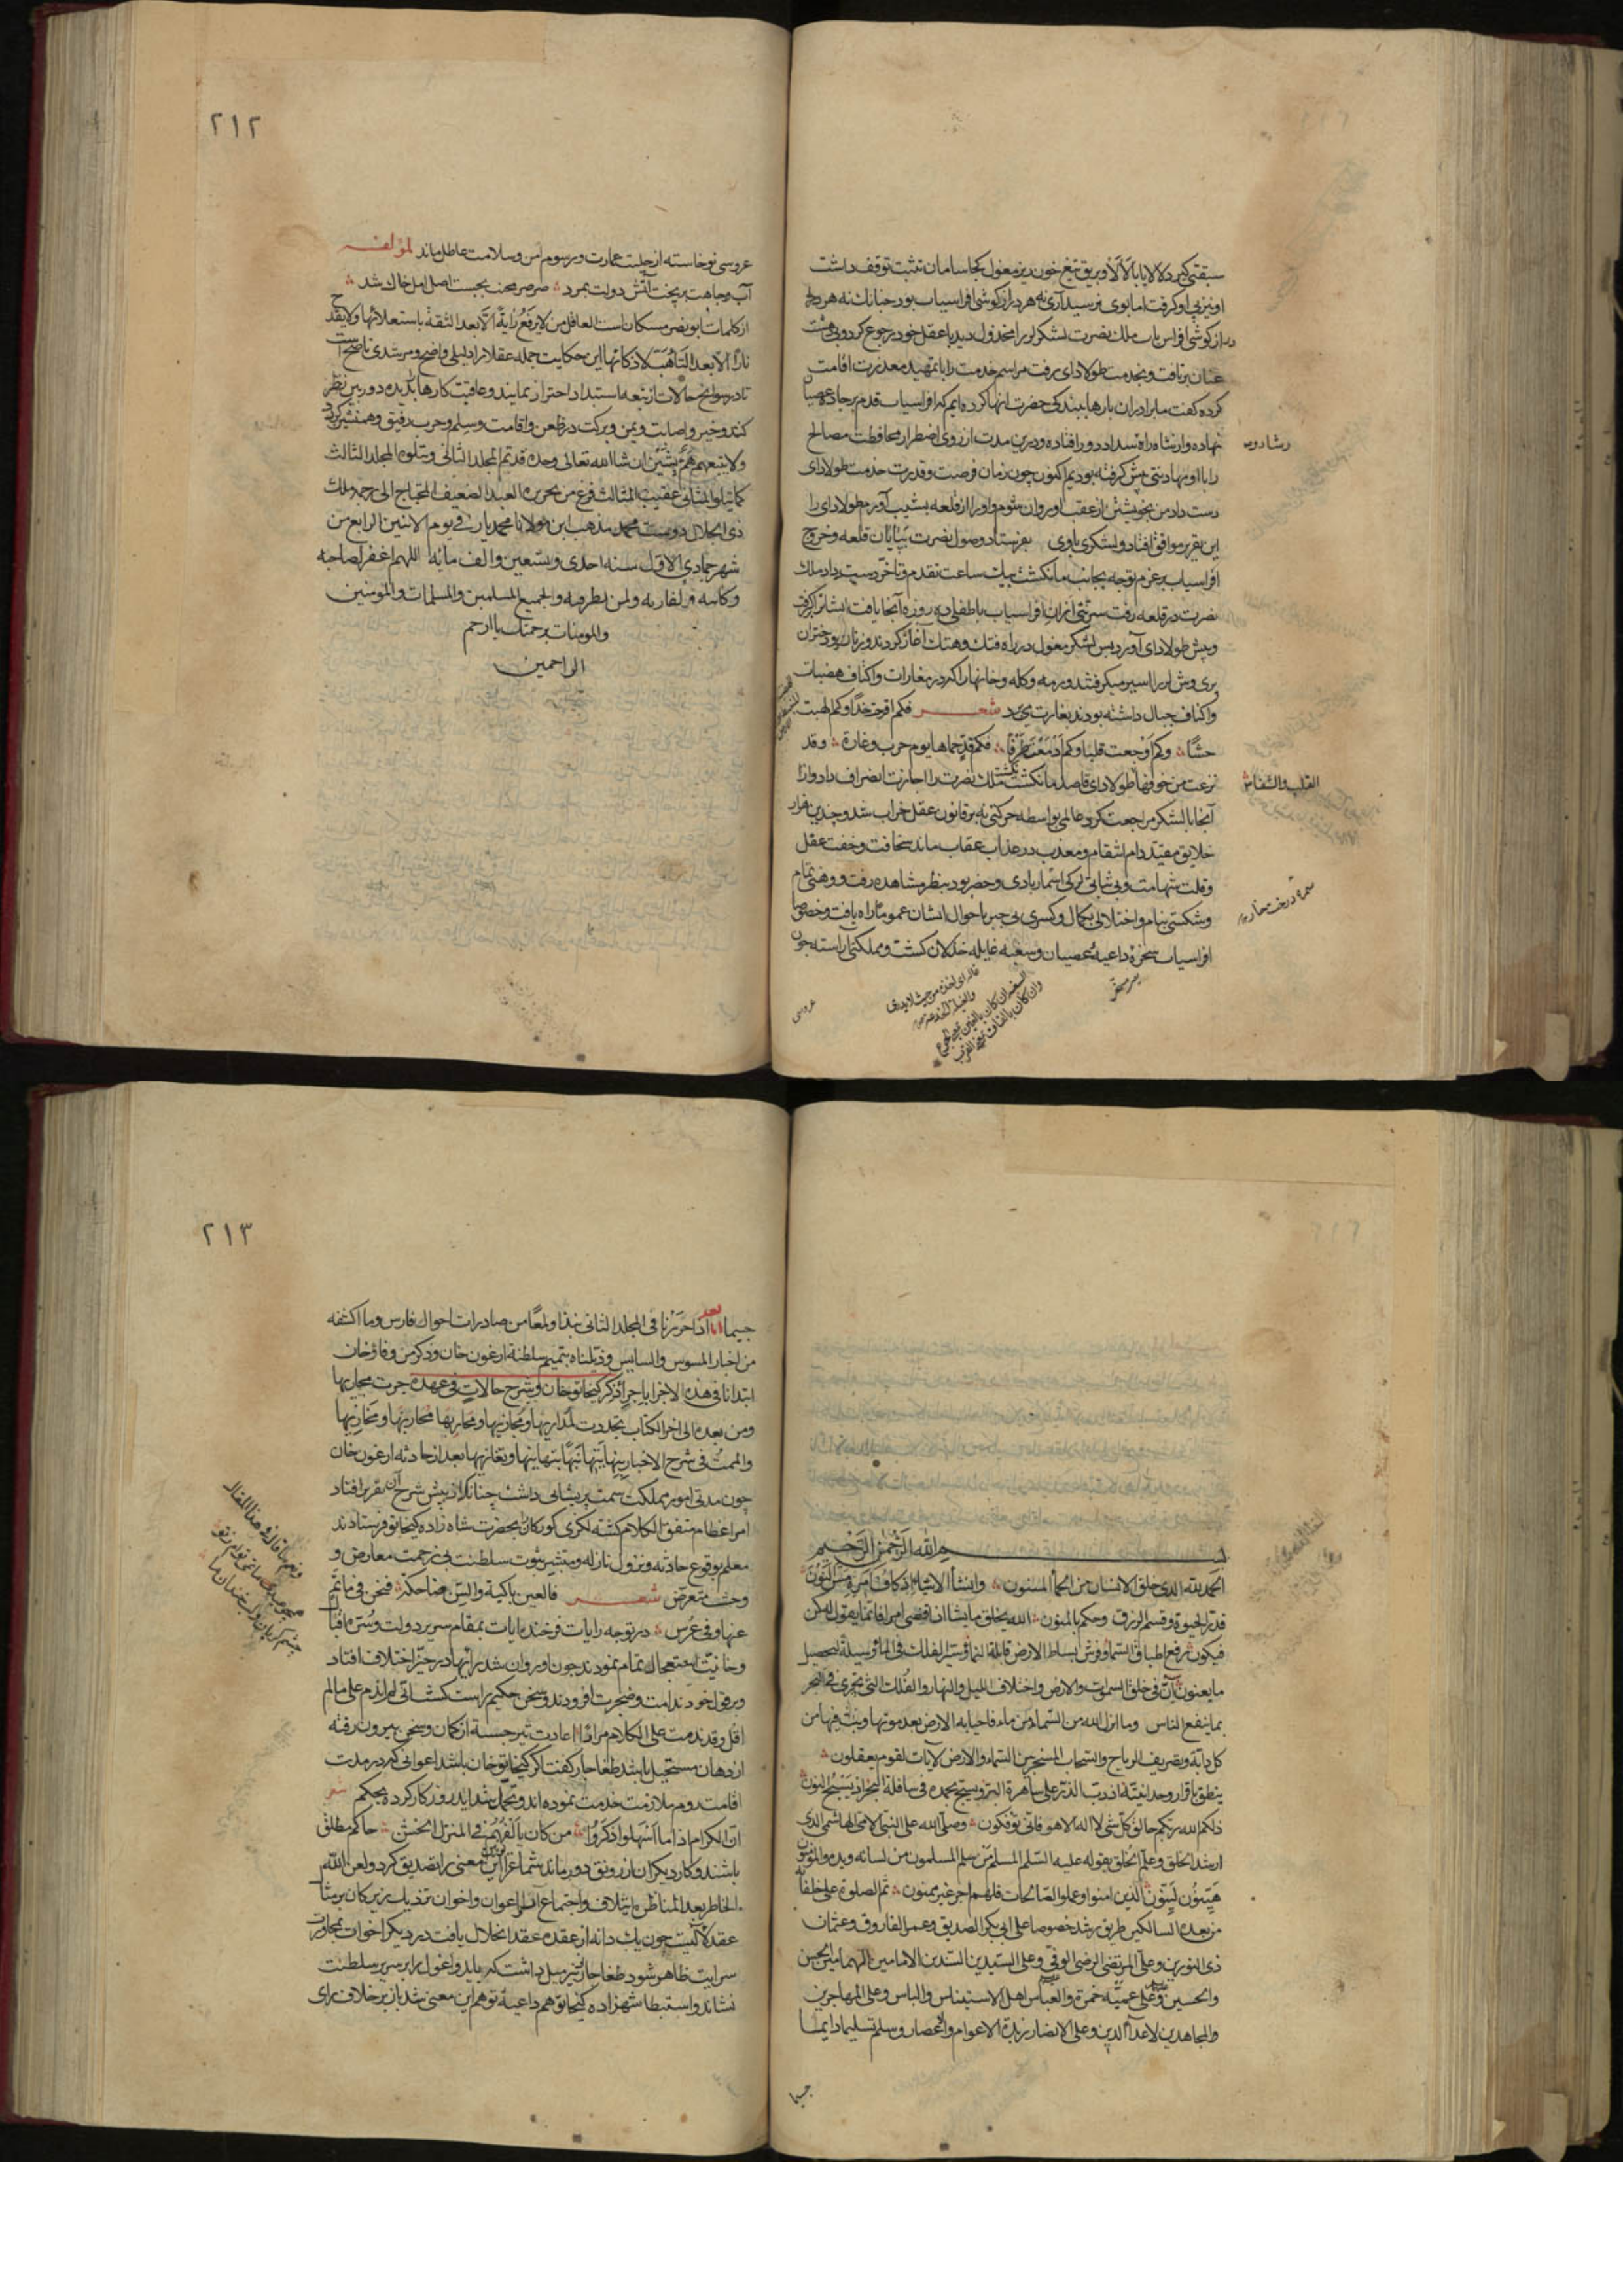 سبقتی کیرد لالایا بالالا و بریق تیغ خون ریز مغول کجا سامان تثبت توقف داشت
او نیز پی او کرفت اما بوی نرسید آری نه هر دراز کوشی افراسیاب بود چنانک نه هر دم
دراز کوشی افراسیاب ملک نصرت لشکر لور را مخذول دید با عقل خود رجوع کرد و پی
عنان برتافت و بخدمت طولادای رفت مراسم خدمت را با تمهید معذرت اقامت
کرده کفت ما برادران بارها ببندکی حضرت انها کرده ایم که افراسیاب قدم بر جاده عصیان
نهاده و از شاه راه سداد دور افتاده و درین مدت از روی اضطرار محافظت مصالح
را با او مهادنتی پیش کرفته بودیم اکنون چون زمان فرصت و قدرت خدمت طولادای
دست داد من بخویشتن از عقب او روان شوم و او را از قلعه بشیب آورم طولادای را
این تقریر موافق افتاد و لشکری با وی بفرستاد وصول نصرت بپایان قلعه و خروج
افراسیاب بر عزم توجه بجانب مانکشت بیک ساعت تقدم و تاخر دست داد ملک
نصرت در قلعه رفت سریتی از ان افراسیاب با طفلی ده روزه آنجا یافت ایشانرا کرفت
و پیش طولادای آورد پس لشکر مغول در راه فتک و هتک آغاز کردند و زنان و دختران
پری وش لر را اسیر میکرفتند و رمه و کله و خانها را که در مغارات و اکناف هضبات
و اکناف جبال داشته بودند بغارت می برد شعر فکم اقرحت خدا و کم الهبت
حشا وکم اوجعت قلبا وکم ادمعت طرفا فکم قد حماها یوم حرب و غارة و قد
نزعت من خوفها طولادای قاصد مانکشت کشت ملک نصرت را اجازت انصراف داد و از
آنجا با لشکر مراجعت کرد عالمی بواسطه حرکتی نه بر قانون عقل خراب شد و چندین هزار
خلایق مقید دام انتقام و معذب در عذاب عقاب ماند سخافت و خفت عقل
و قلت شهامت و بی ثباتی لر کی اسمار بادی و حضر بود بنظر مشاهده رفت و وهنی تمام
و شکستی بنام و اختلالی بکمال و کسری بی جبر باحوال ایشان عموما راه یافت و خصوصا
افراسیاب سخره داعیه عصیان و سغبه غایله خذلان کشت و مملکتی اراسته چون
رشاد
القلب والشفا
سمره درخت خار
عروسی
۲۱۲
عروسی نوخاسته از حلیت عمارت و رسوم امن و سلامت عاطل ماند لمؤلفه
آب وجاهت بریخت آتش دولت بمرد صرصر محنت بجست اصل امل خاک شد
از کلمات ابو نصر مسکان است العاقل من لا یرفع رایة الا بعد الثقة باستعلائها ولا یقدح
نارا الا بعد التأهب لاذکائها این حکایت جمله عقلا را دلیلی واضح و مرشدی ناصح است
تا در سوانح حالات از تبعه استبداد احتراز نمایند و عاقبت کارها بدیده دوربین نظر
کنند و خیر و اصابت و یمن و برکت در ظعن و اقامت و سلم و حرب رفیق و همنشین
ولا یتبعهم هم یشین ان شا الله تعالی وحده قد تم المجلد الثانی ویتلوه المجلد الثالث
کما یتلو المثانی عقیب المثالث فرغ من تحریره العبد الضعیف المحتاج الی رحمه ملک
ذی الجلال دوست محمد مذهب ابن مولانا محمد یار فی یوم الاثنین الرابع من
شهر جمادی الاول سنه احدی وتسعین والف مائه اللهم اغفر لصاحبه
وکاتبه ولقاریه ولمن نظر فیه والجمیع المسلمین والمسلمات والمؤمنین
والمومنات برحمتک یا ارحم
الراحمین
بسم الله الرحمن الرحیم
الحمد لله الذی خلق الانسان من الحمأ المسنون وانشأ الاشیاء
قدر الحیوة وقسم الرزق وحکم بالمنون الله یخلق ما یشا اذا قضی امرا فانما یقول له کن
فیکون رفع اطباق السماء وفرش بساط الارض قابلة النما وسیر الفلک فی الما وسیلة لتحصیل
ما یعنون ان فی خلق السموات والارض واختلاف اللیل والنهار والفلک التی تجری فی البحر
بما ینفع الناس وما انزل الله من السماء من ماء فاحیا به الارض بعد موتها وبث فیها من
کل دابة وتصریف الریاح والسحاب المسخر بین السماء والارض لایات لقوم یعقلون
ینطق باقرار وحدانیته اذ دب الذر علی ساهرة البر ویسبح بحمده فی سافلة البحر اذ یسبح النون
ذلکم الله ربکم خالق کل شی لا اله الا هو فانی توفکون وصلی الله علی النبی الامی الهاشمی الذی
ارشد الخلق وعلم الخلق بقوله علیه السلم المسلم من سلم المسلمون من لسانه ویده والمؤمنون
هینون لینون الذین امنوا وعملوا الصالحات فلهم اجر غیر ممنون ثم الصلوة علی خلفائه
من بعده السالکین طریق رشده خصوصا علی ابی بکر الصدیق وعمر الفاروق وعثمان
ذی النورین وعلی المرتضی الرضی الوفی وعلی السیدین السندین الامامین الهمامین الحسن
والحسین وعلی عمیه حمزة والعباس اهل الاستیناس والباس وعلی المهاجرین
والمجاهدین لاعدآ الدین وعلی الانصار زبدة الاعوام والاعصار وسلم تسلیما دایما
جسیما
۲۱۳
جسیما اما بعد اذا حررنا فی المجلد الثانی نبذا ولمعا من صادرات احوال فارس وما اکتنفه
من اخبار المسوس والسایس وذیلناه بتتمیم سلطنة ارغون خان وذکر من وفاة خان
ابتدانا فی هذه الاجزا باجراء ذکر کیخاتو خان وشرح حالات فی عهده جرت مجاریها
ومن بعده الی اخر الکتاب تجددت
بعد از حادثه ارغون خان
چون مدتی امور مملکت سمت پریشانی داشت چنانک از پیش شرح آن تقریر افتاد
امرا عظام متفق الکلام کشته لکزی کورکان بحضرت شاه زاده کیخاتو فرستادند
معلم بوقوع حادثه و نزول نازله و مبشر بثبوت سلطنت بی زحمت معارض و
وحشت متعرض شعر فالعین باکیة والسن ضاحکة فنحن فی ماتم
عنها وفی عرس در توجه رایات فرخنده ایات بمقام سریر دولت
وخانیت استعجال تمام نمودند چون او روان شد رایها در حیز اختلاف افتاد
و بر قول خود ندامت و ضجرت افزودند و سخن حکیم راست کشت انی لم اندم علی ما لم
اقل وقد ندمت علی الکلام مرارا اعادت تیر جسته از کمان و سخن بیرون رفته
از دهان مستحیل باشد طغاجار کفت اکر کیخاتو خان باشد اعوانی که در مدت
اقامت روم ملازمت خدمت نموده اند و تحمل شداید روزکار کرده بحکم شعر
ان الکرام اذا ما اسهلوا ذکروا من کان یألفهم فی المنزل الخشن حاکم مطلق
باشند و کار دیکران از رونق دور ماند شما غزان این معنی را تصدیق کرد
الخاطر بعد المناظره ایتلاف و اجتماع آن اعوان و اخوان
عقد لآلیست چون یک دانه از عقده عقد انحلال یافت در دیکر اخوات مجاورت
سرایت ظاهر شود طغاجار نیز میل داشت که بایدو اغول را بر سریر سلطنت
نشاند و استبطا شهزاده کیخاتو هم داعیه توهم این معنی شد باز بر خلاف رای